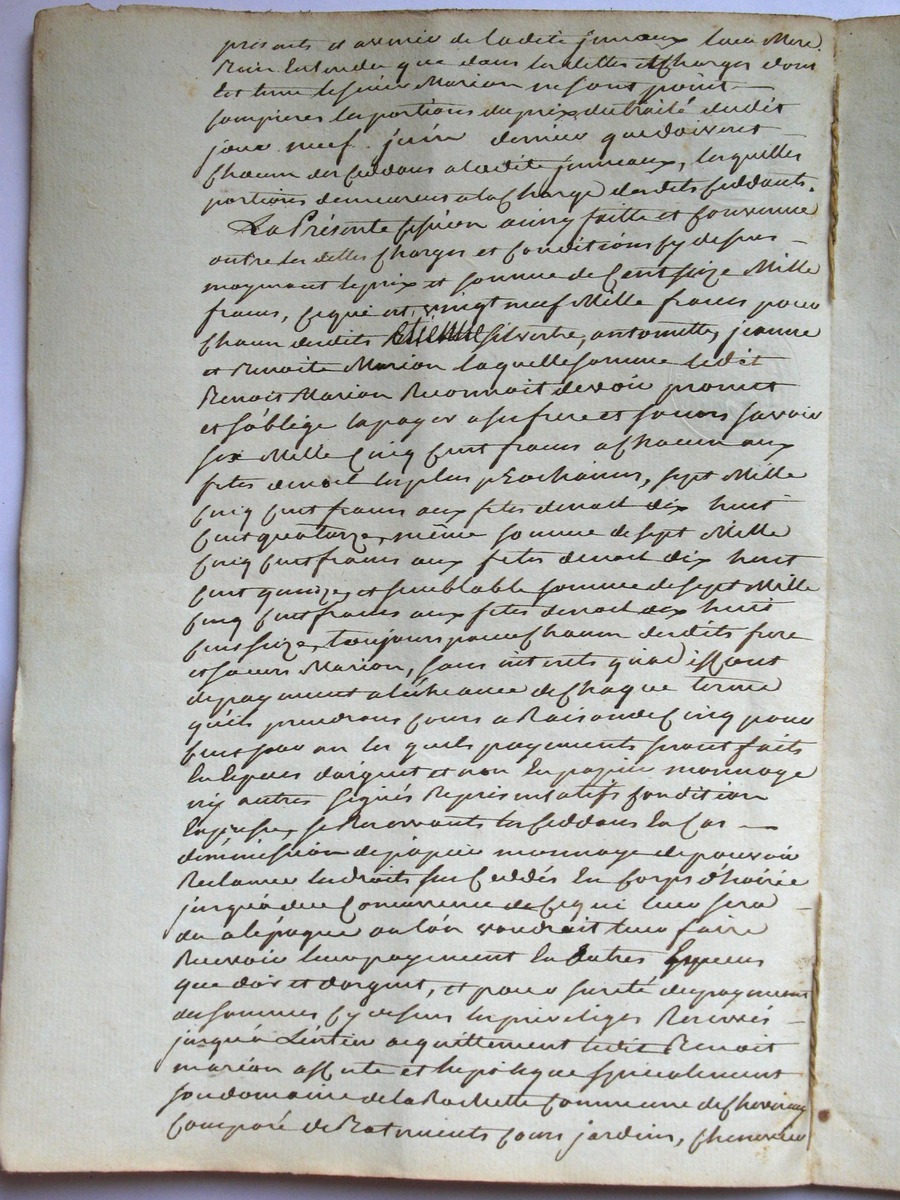 présents et avenir de ladite jumeaux leur Mere.
Bien entendu que dans les dettes et Charges dont
est tenu le sieur Marion ne sont point
comprises les portions du prix du traité dudit
jour neuf juin dernier que doivent
Chacun des Ceddans a ladite jumeaux, lesquelles
portions demeurent a la Charge desdits Ceddants.
La Présente Cession ainsy faitte et Convenue
outre les dettes Charges et Conditions Cy dessus
moyennant le prix et somme de Cent seize Mille
francs, Ce qui est vingt neuf Mille francs pour
Chacun desdits Etienne Silvestre, antoinette, jeanne
et Benoite Marion laquelle somme ledit
Benoit Marion Reconnoit devoir promet
et s'oblige la payer a ses frere et soeurs savoir
six Mille Cinq Cent francs a Chacun aux
fetes de noel les plus prochaines, sept Mille
Cinq Cent francs aux fetes de noel dix huit
Cent quatorze, même somme de sept Mille
Cinq Cent francs aux fetes de noel dix huit
Cent quinze, et semblable somme de sept Mille
Cinq Cent francs aux fetes de noel dix huit
Cent seize, toujours pour Chacun desdits frere
et soeurs Marion, sans interets qu'a deffaut
de payement a l'échéance de Chaque terme
qu'ils prendront Cours a Raison de Cinq pour
Cent par an les quels payements seront faits
En Especes d'argent et non En papier monnoye
n'y autres signes Représentatifs Condition
Expresse, se Reservants les Ceddans En Cas
d'émission de papier monnoye de pouvoir
Reclamer les droits sus Ceddés En Corps d'hoirie
jusqu'a due Concurrence de Ce qui leur sera
du a l'époque ou l'on voudrait leur faire
Recevoir leur payement En Autres Especes
que d'or et d'argent, et pour sureté du payement
des sommes Cy dessus les privileges Reservés
jusqu'a L'entier acquittement ledit Benoit
marion affecte et hipoteque spécialement
son domaine de la Rochette Commune de
Composé de Batiments Cours jardins, Cheneviere